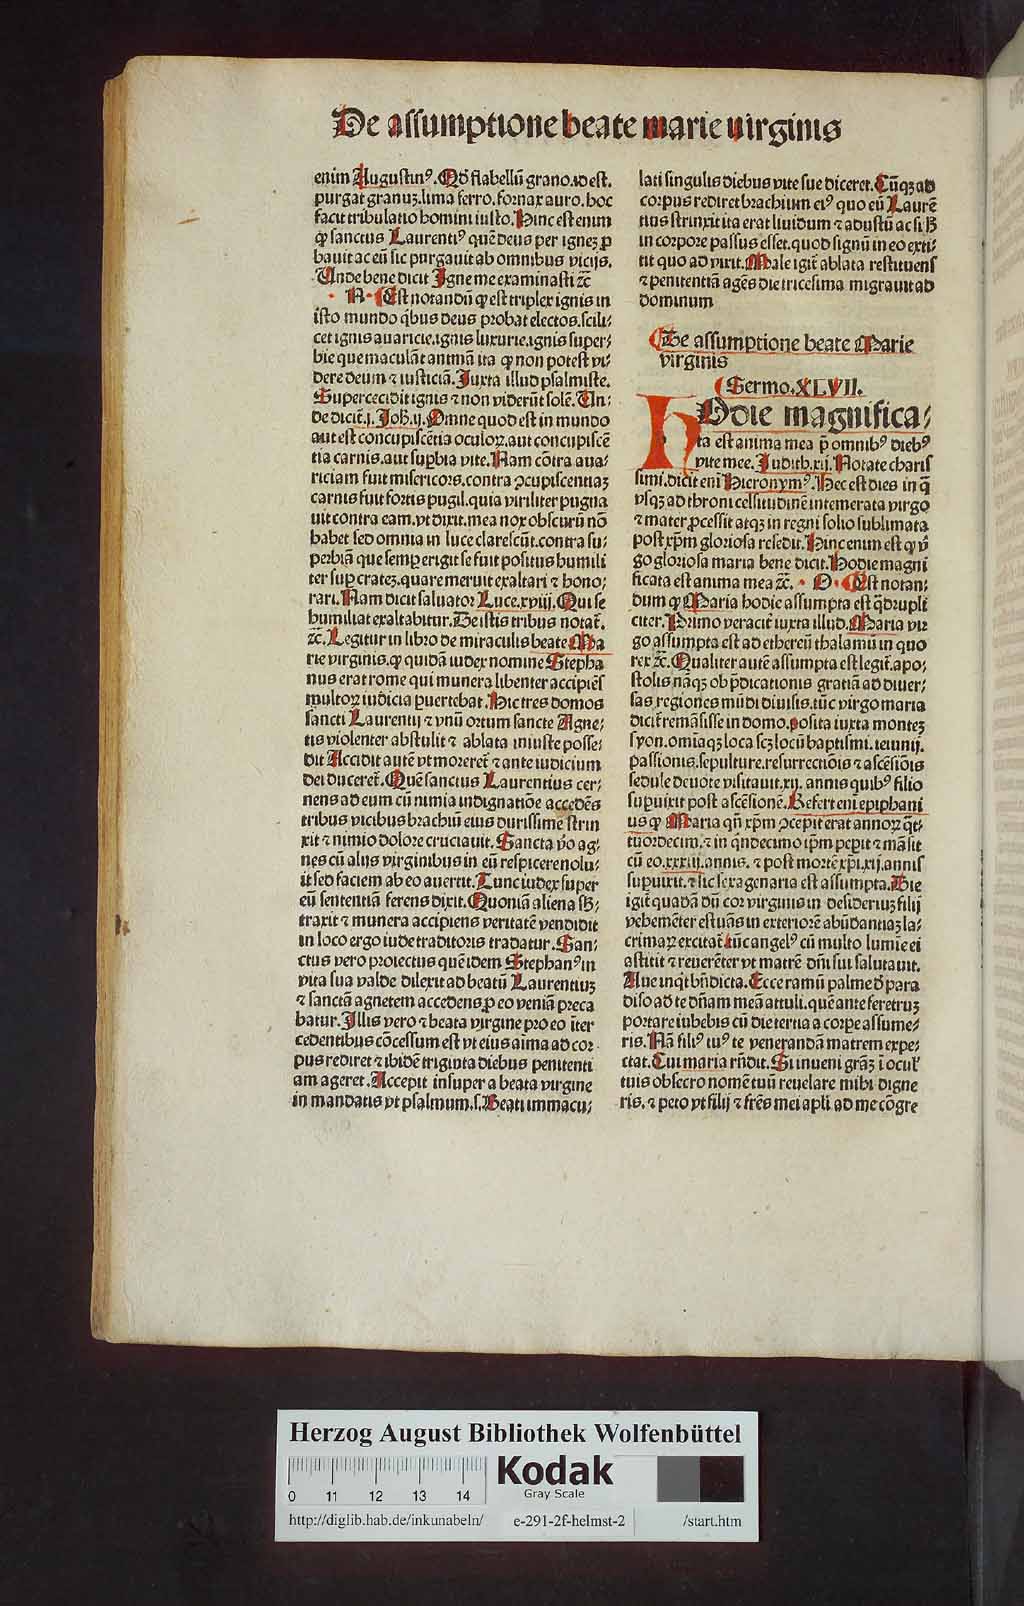 De assumptione beate marie virginis
enim Augustinꝰ. Qđ flabellũ grano.id est.
purgat granuꝫ.lima ferro.fornax auro.hoc
facit tribulatio homini iusto. Hinc est enim
ꝙ sanctus Laurentiꝰ quẽ deus per igneꝫ ꝓ
bauit ac eũ sic purgauit ab omnibus vicijs.
Unde bene dicit Igne me examinasti ⁊c̃
N. Est notandũ ꝙ est triplex ignis in
isto mundo q̇bus deus probat electos.scili⸗
cet ignis auaricie.ignis luxurie.ignis super⸗
bie que maculãt animã ita ꝙ non potest vi⸗
dere deum ⁊ iusticiã. Juxta illud psalmiste.
Supercecidit ignis ⁊ non viderũt solẽ. Un⸗
de dicit̃.j. Joh̃.ij. Omne quod est in mundo
aut est concupiscẽtia oculoꝝ.aut concupiscẽ
tia carnis.aut suꝑbia vite. Nam cõtra aua⸗
riciam fuit misericors.contra ꝯcupiscentiaꝫ
carnis fuit fortis pugil.quia viriliter pugna
uit contra eam.vt dixit.mea nox obscurũ nõ
habet sed omnia in luce clarescũt.contra su⸗
perbiã que semꝑ erigit se fuit positus humili
ter suꝑ crateꝫ.quare meruit exaltari ⁊ hono⸗
rari. Nam dicit saluator Luce.xviij. Qui se
humiliat exaltabitur. De istis tribus notat̃.
⁊c̃. Legitur in libro de miraculis beate Ma
rie virginis.ꝙ quidã iudex nomine Stepha
nus erat rome qui munera libenter accipiẽs
multoꝝ iudicia ꝑuertebat. Hic tres domos
sancti Laurentij ⁊ vnũ ortum sancte Agne⸗
tis violenter abstulit ⁊ ablata iniuste posse⸗
dit Accidit autẽ vt moreret̃ ⁊ ante iudicium
dei duceret̃. Quẽ sanctus Laurentius cer⸗
nens ad eum cũ nimia indignatiõe accedẽs
tribus vicibus brachiũ eius durissime strin
xit ⁊ nimio dolore cruciauit. Sancta v̊o ag⸗
nes cũ alijs virginibus in eũ respicere nolu⸗
it sed faciem ab eo auertit. Tunc iudex super
eũ sententiã ferens dixit. Quoniã aliena sb̃⸗
traxit ⁊ munera accipiens veritatẽ vendidit
in loco ergo iude traditoris tradatur. San⸗
ctus vero proiectus quẽ idem Stephanꝰ in
vita sua valde dilexit ad beatũ Laurentiuꝫ
⁊ sanctã agnetem accedens ꝓ eo veniã preca
batur. Illis vero ⁊ beata virgine pro eo ĩter
cedentibus cõcessum est vt eius aĩma ad cor⸗
pus rediret ⁊ ibidẽ triginta diebus penitenti
am ageret. Accepit insuper a beata virgine
in mandatis vt psalmum.s. Beati immacu⸗
lati singulis diebus vite sue diceret. Cũqꝫ ad
corpus rediret brachium eiꝰ quo eũ Laurẽ
tius strinxit ita erat liuidum ⁊ adustũ ac si h̃
in corpore passus esset.quod signũ in eo exti⸗
tit quo ad vixit. Male igit̃ ablata restituens
⁊ penitentiã agẽs die tricesima migrauit ad
dominum
De assumptione beate Marie
virginis
Sermo.XLVII.
HOdie magnifica⸗
ta est anima mea p̃ omnibꝰ diebꝰ
vite mee. Judith.xij. Notate charis
simi.dicit eni Hieronymꝰ. Hec est dies in q̃
vsqꝫ ad throni celsitudinẽ intemerata virgo
⁊ mater ꝓcessit atqꝫ in regni solio sublimata
post xp̃m gloriosa resedit. Hinc enim est ꝙ v̇
go gloriosa maria bene dicit. Hodie magni
ficata est anima mea ⁊c̃. O. Est notan⸗
dum ꝙ Maria hodie assumpta est q̃drupli
citer. Primo veracit̃ iuxta illud. Maria vir
go assumpta est ad ethereũ thalamũ in quo
rex ⁊c̃. Qualiter autẽ assumpta est legit̃.apo⸗
stolis nãqꝫ ob p̃dicationis gratiã ad diuer⸗
sas regiones mũdi diuisis.tũc virgo maria
dicit̃ remãsisse in domo.posita iuxta monteꝫ
syon.omĩaqꝫ loca scꝫ locũ baptismi.ieiunij.
passionis.sepulture.resurrectiõis ⁊ ascẽsiõis
sedule deuote visitauit.xij. annis quibꝰ filio
suꝑuixit post ascẽsionẽ. Refert enĩ epiphani
us ꝙ Maria qñ xp̃m ꝯcepit erat annoꝝ q̃t⸗
tuordecim.⁊ in q̇ndecimo ip̃m peꝑit ⁊ mãsit
cũ eo.xxxiij.annis. ⁊ post mortẽ xp̃i.xij.annis
suꝑuixit.⁊ sic sexagenaria est assumpta. Die
igit̃ quadã dũ cor virginis in desideriuꝫ filij
vehemẽter estuãs in exteriorẽ abũdantiaꝫ la⸗
crimaꝝ excitat̃ tũc angelꝰ cũ multo lumĩe ei
astitit ⁊ reuerẽter vt matrẽ dñi sui salutauit.
Aue inq̇t bñdicta. Ecce ramũ palme đ para
diso ad te dñam meã attuli.quẽ ante feretruꝫ
portare iubebis cũ die tertia a corꝑe assume⸗
ris. Nã filiꝰ tuꝰ te venerandã matrem expe⸗
ctat. Cui maria rñdit. Si inueni grãꝫ ĩ ocul̕
tuis obsecro nomẽ tuũ reuelare mihi digne
ris. ⁊ peto vt filij ⁊ fr̃es mei apl̃i ad me cõgre
Herzog August Bibliothek Wolfenbüttel
0 11 12 13 14
Kodak
Gray Scale
http://diglib.hab.de/inkunabeln/ e-291-2f-helmst-2 /start.htm